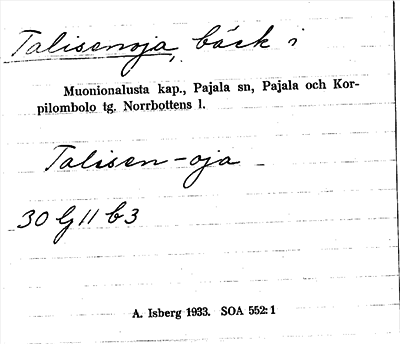 Talisenoja, bäck i
Muonionalusta kap., Pajala sn, Pajala och Kor-
pilombolo tg. Norrbottens l.
Talisen-oja
30 lj 11 b 3
A. Isberg 1933. SOA 552:1